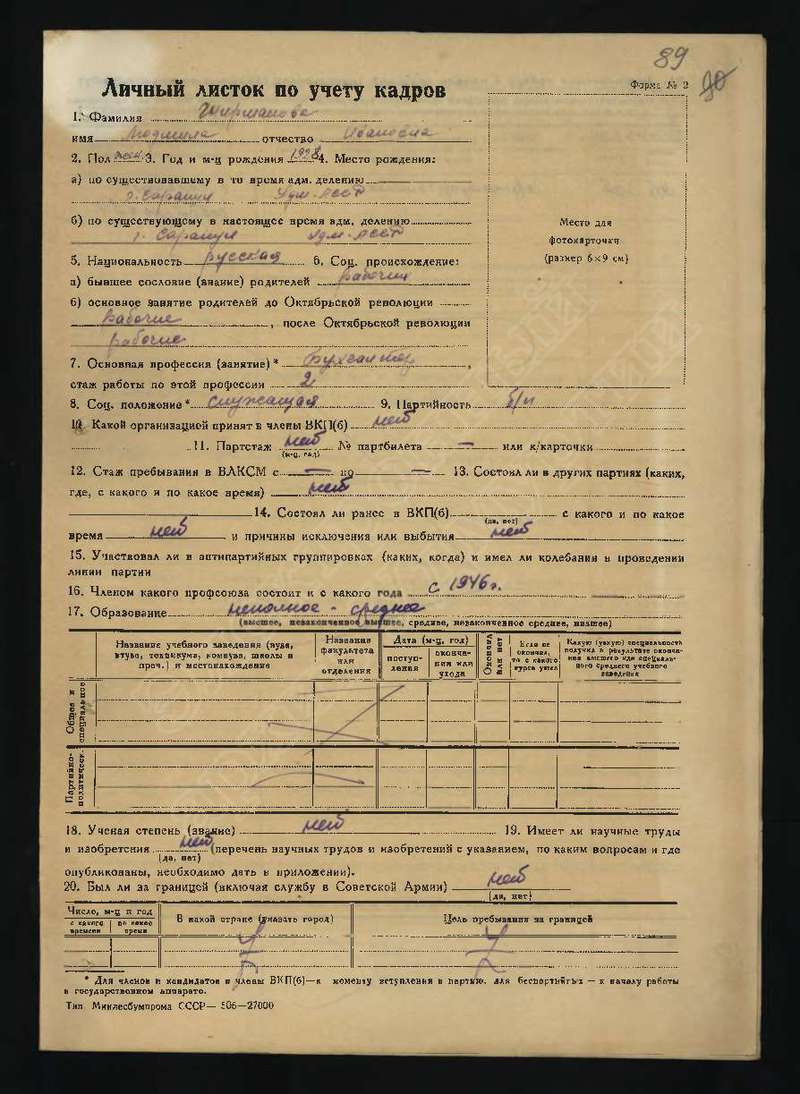 89
Форма № 2
Личный листок по учету кадров
1. Фамилия Ширманова
имя Людмила отчество Ивановна
2. Пол жен 3. Год и м-ц рождения 1928 4. Место рождения:
а) по существовавшему в то время адм. делению
г. Сарапул Удм-АССР
б) по существующему в настоящее время адм. делению
г. Сарапул Удм-АССР
5. Национальность русская 6. Соц. происхождение:
а) бывшее сословие (звание) родителей рабочий
б) основное занятие родителей до Октябрьской революции
рабочие, после Октябрьской революции
рабочие
Место для
фотокарточки
(размер 6×9 см)
7. Основная профессия (занятие)* бухгалтер,
стаж работы по этой профессии 2
8. Соц. положение* служащая 9. Партийность б/п
10. Какой организацией принят в члены ВКП(б) нет
11. Партстаж нет № партбилета — или к/карточки
(м-ц, год)
12. Стаж пребывания в ВЛКСМ с — по — 13. Состоял ли в других партиях (каких,
где, с какого и по какое время) нет
14. Состоял ли ранее в ВКП(б) с какого и по какое
(да, нет)
время нет и причины исключения или выбытия нет
15. Участвовал ли в антипартийных группировках (каких, когда) и имел ли колебания в проведении
линии партии
16. Членом какого профсоюза состоит и с какого года с 1946 г.
17. Образование неполное - среднее
(высшее, незаконченное высшее, среднее, незаконченное среднее, низшее)
Название учебного заведения (вуза, втуза, техникума, комвуза, школы и проч.) и местонахождение
Название факультета или отделения
Дата (м-ц, год)
поступления
окончания или ухода
Окончил или нет
Если не окончил, то с какого курса ушел
Какую (узкую) специальность получил в результате окончания высшего или специального среднего учебного заведения
Общее и специальное
Партийно-политическ.
18. Ученая степень (звание) нет 19. Имеет ли научные труды
и изобретения нет (перечень научных трудов и изобретений с указанием, по каким вопросам и где
(да, нет)
опубликованы, необходимо дать в приложении).
20. Был ли за границей (включая службу в Советской Армии) нет
(да, нет)
Число, м-ц и год
с какого времени
по какое время
В какой стране (указать город)
Цель пребывания за границей
* Для членов и кандидатов в члены ВКП(б)—к моменту вступления в партию, для беспартийных — к началу работы
в государственном аппарате.
Тип. Минлесбумпрома СССР—506—27000